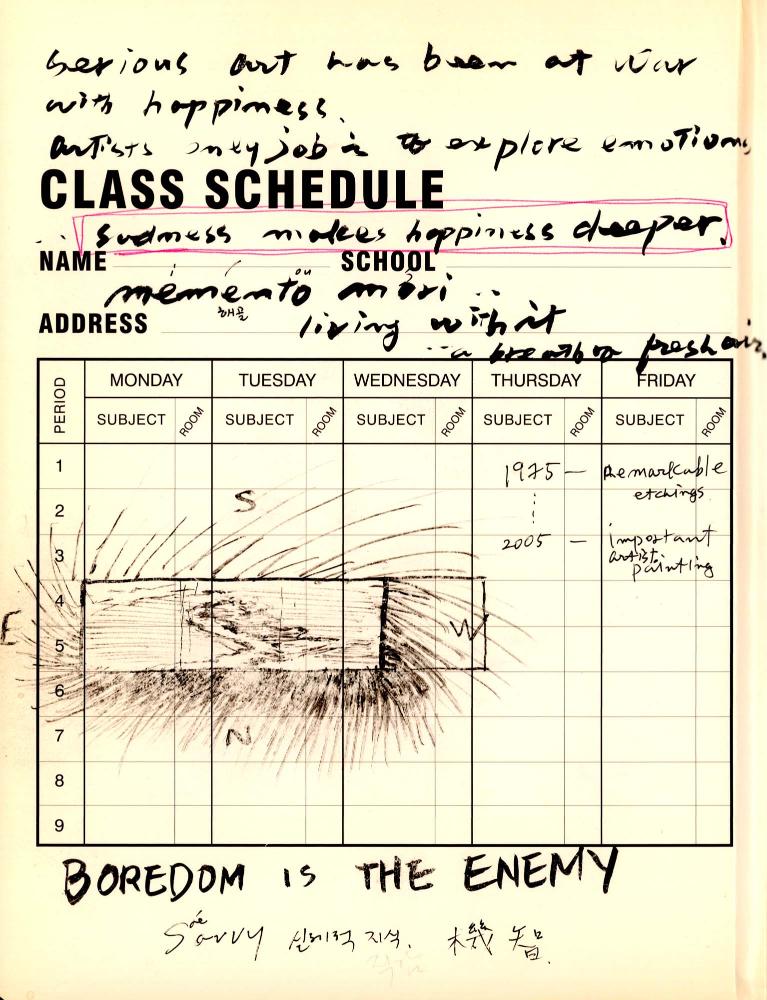 serious art has been at war
with happiness.
artists only job is to explore emotions
CLASS SCHEDULE
sadness makes happiness deeper.
NAME SCHOOL
memento mori ..
ADDRESS 해골 living with it
a breath of fresh air.
PERIOD MONDAY TUESDAY WEDNESDAY THURSDAY FRIDAY
SUBJECT ROOM SUBJECT ROOM SUBJECT ROOM SUBJECT ROOM SUBJECT ROOM
1 1975 — Remarkable
etchings
2 S
3 2005 — important
artist
painting
4
E W
5
6
7 N
8
9
BOREDOM IS THE ENEMY
Savvy 실제적 지식. 機智.